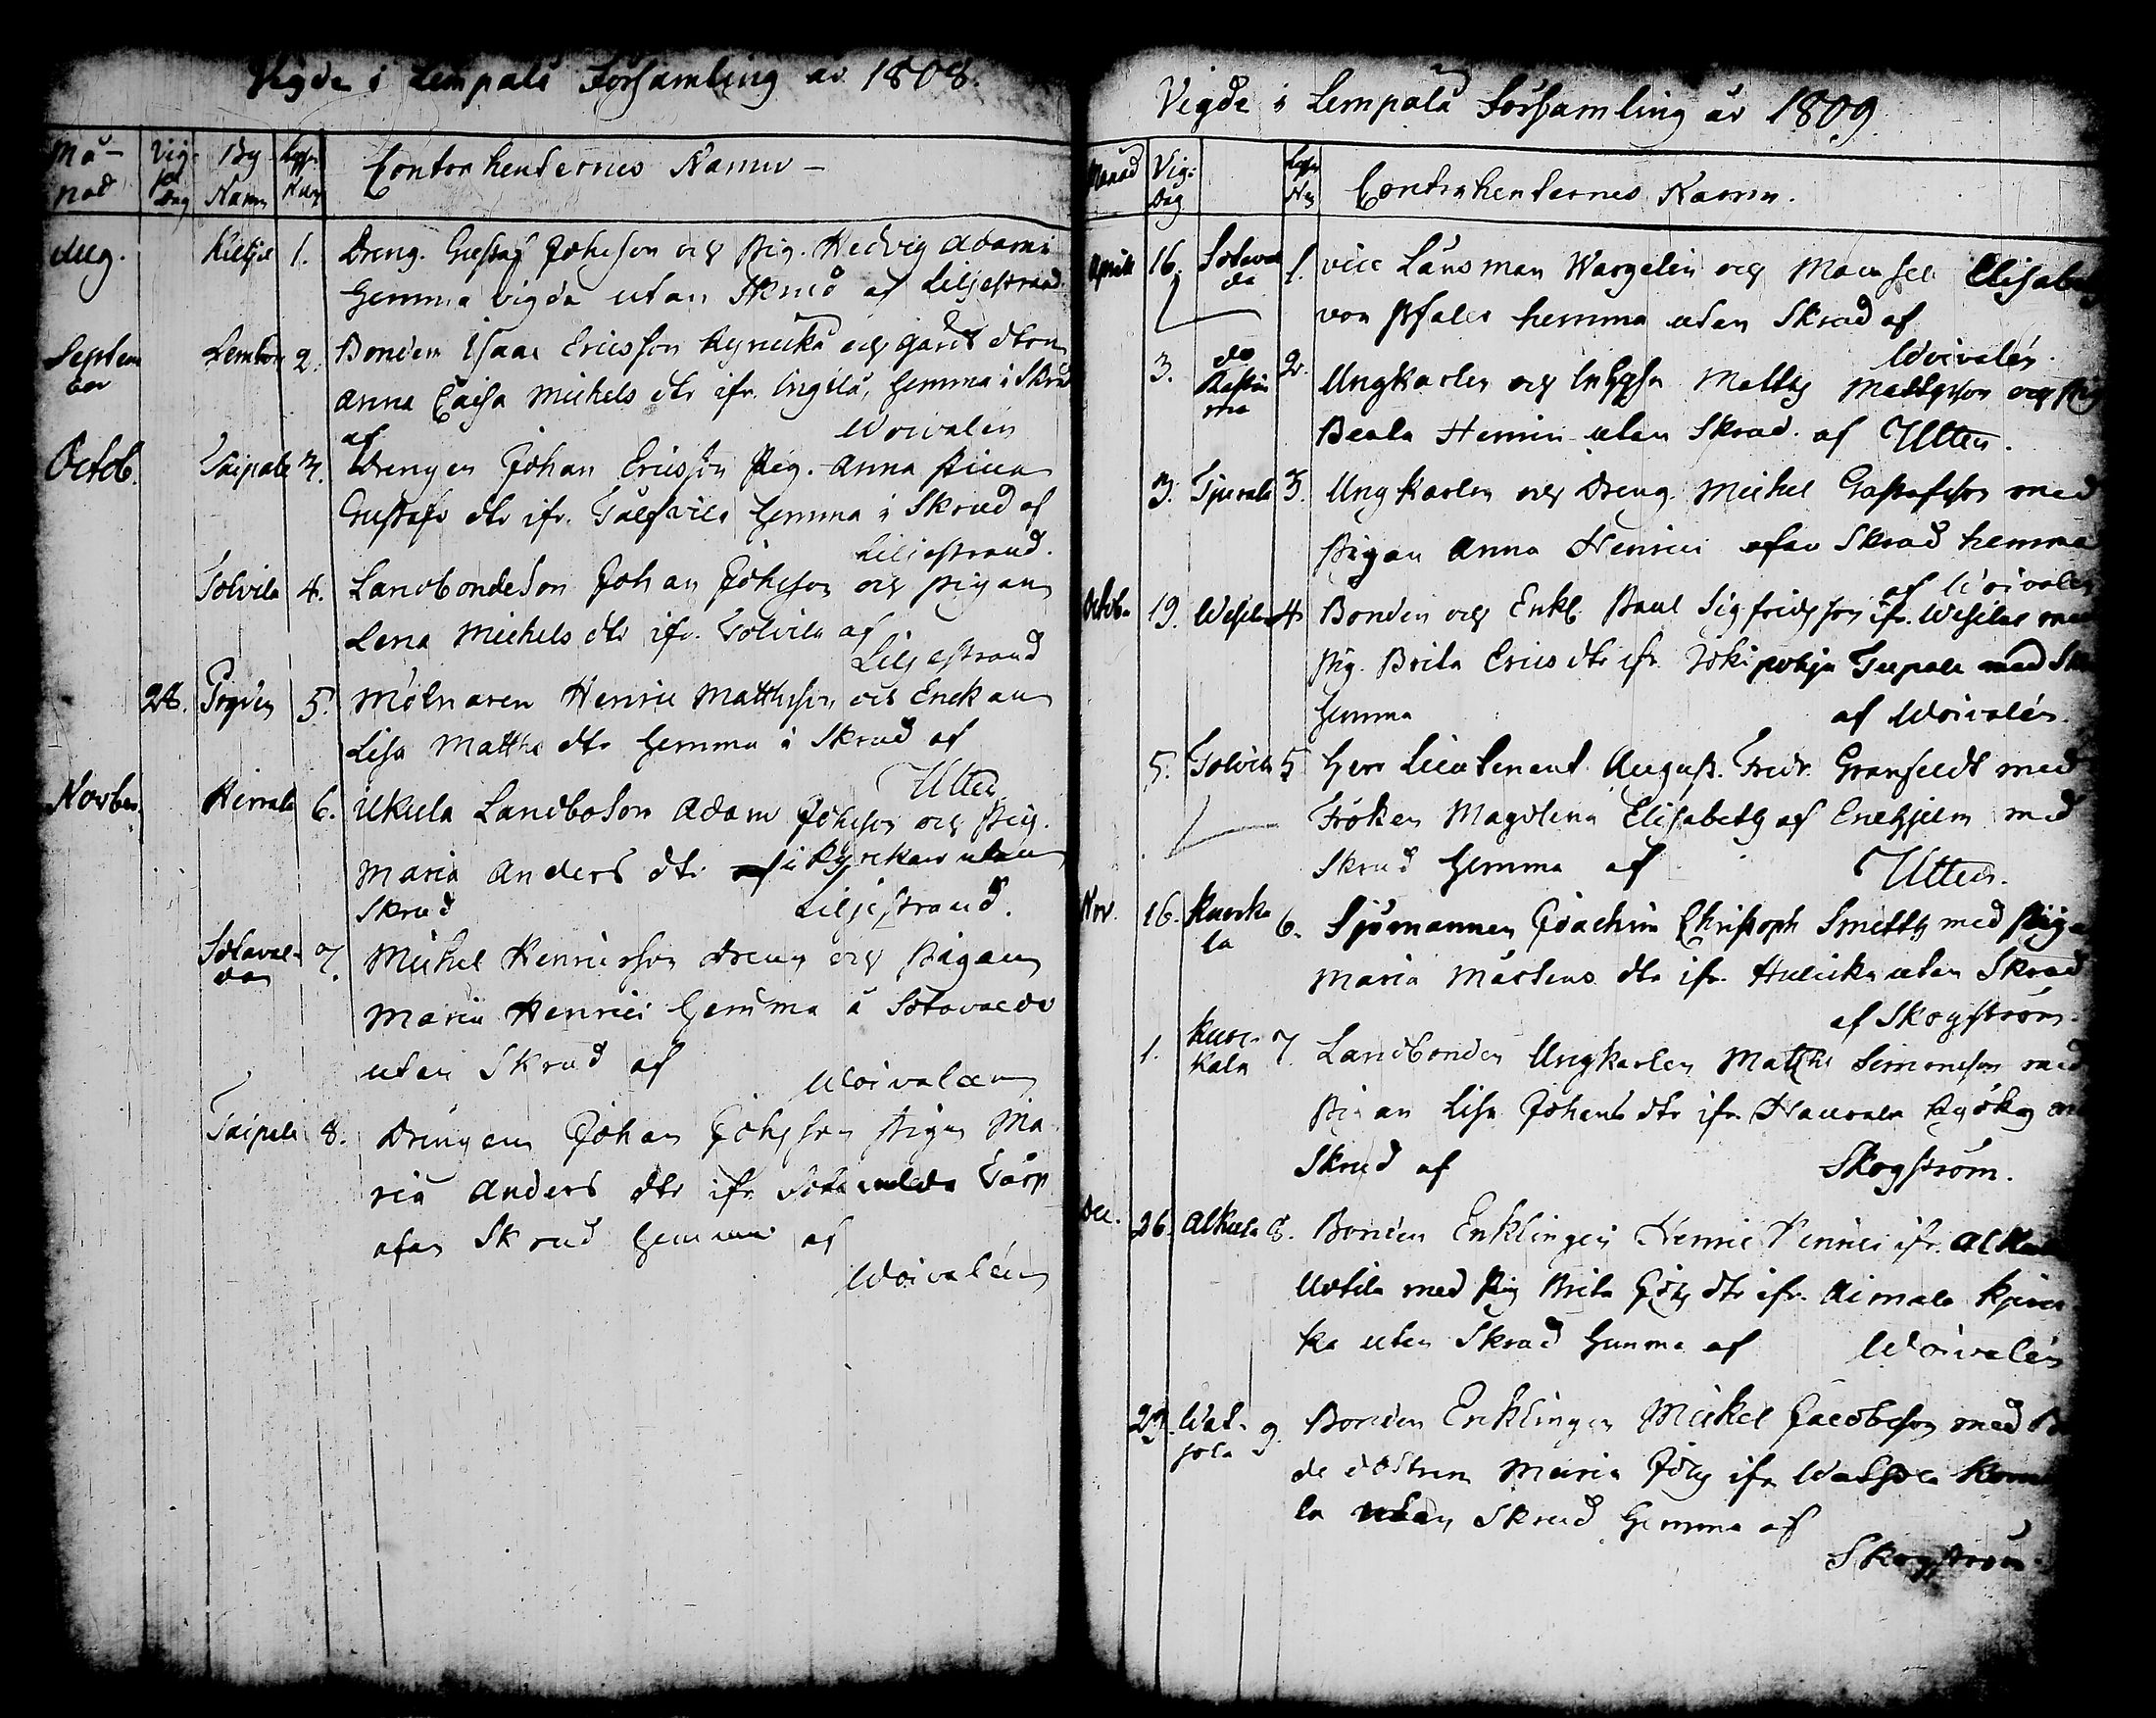 Vigde i Lempälä Församling år 1808.
Må-
nad
Vig-
Dag
By
Namn
Contrahenternes Namn -
Aug. Kulju 1. Dreng. Gustaf Johsson och Pig. Hedvig Adams
hemma vigda utan Skrud af Liljestrand.
Septem
ber
Lembon 2. Bonden Isaac Ericsson och
Anna Caisa Michels dtr ifr. Ingilä, hemma i Skrud
af Woivalén
Octob. Taipale 3. Drengen Johan Ericsson Pig. Anna Stina
Gustafs dtr ifr. hemma i Skrud af
Liljestrand.
Tolvila 4. LandbondeSon Johan Johsson och pigan
Lena Michels dtr ifr. Tolvila af
Liljestrand
28. 5. Mölnaren Henric Matthsson och Enckan
Lisa Matths dtr hemma i Skrud af
Utter
Novber Herrala 6. Ukula LandboSon Adam Johsson och Pig.
Maria Anders dtr i Kyrckan utan
Skrud Liljestrand.
Sotaval-
da
7. Michel Henricsson Dreng och Pigan
Maria Henrics hemma i Sotavalda
utan Skrud af
Woivalén
Taipale 8. Drengen Johan Johsson Pigan Ma
ria Anders dtr ifr Sotavalda
utan Skrud hemma af
Woivalén
Vigde i Lempälä Församling år 1809
Månad
Vig-
Dag
Contrahenternes Namn.
April 16. Sotaval
da
1. vice Länsman Wargelin och Mamsell Elisabeth
von Pfaler hemma utan Skrud af
Woivalén.
3. do
2. Ungkarlen och Matts Mattsson och Pig
Beata Henrics utan Skrud. af Utter.
3. 3. Ungkarlen och Dreng. Michel Gustafsson med
Pigan Anna Henrics utan Skrud hemma
af Woivalén
Octob. 19. Wesilax 4. Bonden och Enkl. Paul Sigfridsson ifr. Wesilax med
Pig. Brita Erics dtr ifr. Jokipohja Taipale med Skrud
hemma af Woivalén.
5. Tolvila 5 Herr Lieutenant August. Fredr. Granfeldt med
Fröken Magdlena Elisabeth af Enehjelm med
Skrud hemma af Utter.
Nov. 16. Kuocka
la
6. Sjömannen Joachim Christoph Smitth med Pigan
Maria Mårtens dtr ifr. utan Skrud
af Skogström.
1. Kuoc-
kala
7. Landbonden Ungkarlen Matths Simonsson med
Pigan Lisa Johans dtr ifr.
Skrud af Skogström.
Dec. 26. Alkula 8. Bonden Enklingen Henric Henrics ifr. Alkula
Uotila med Pig Brita Joh dtr ifr. Aimala
ka utan Skrud hemma af Woivalén
29. Wal-
9. Bonden Enklingen Mickel Jacobsson med Bon
de dottren Maria Joh ifr
la utan Skrud hemma af
Skogström.